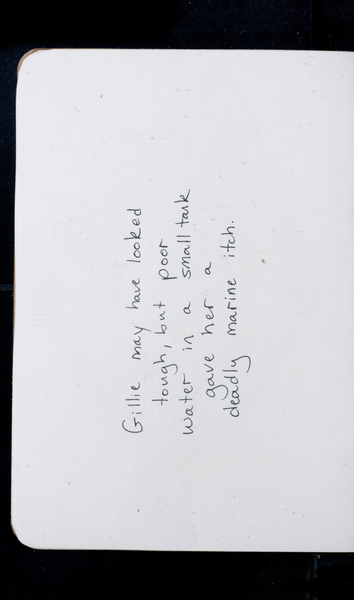 Gillie may have looked
tough, but poor
water in a small tank
gave her a
deadly marine itch.